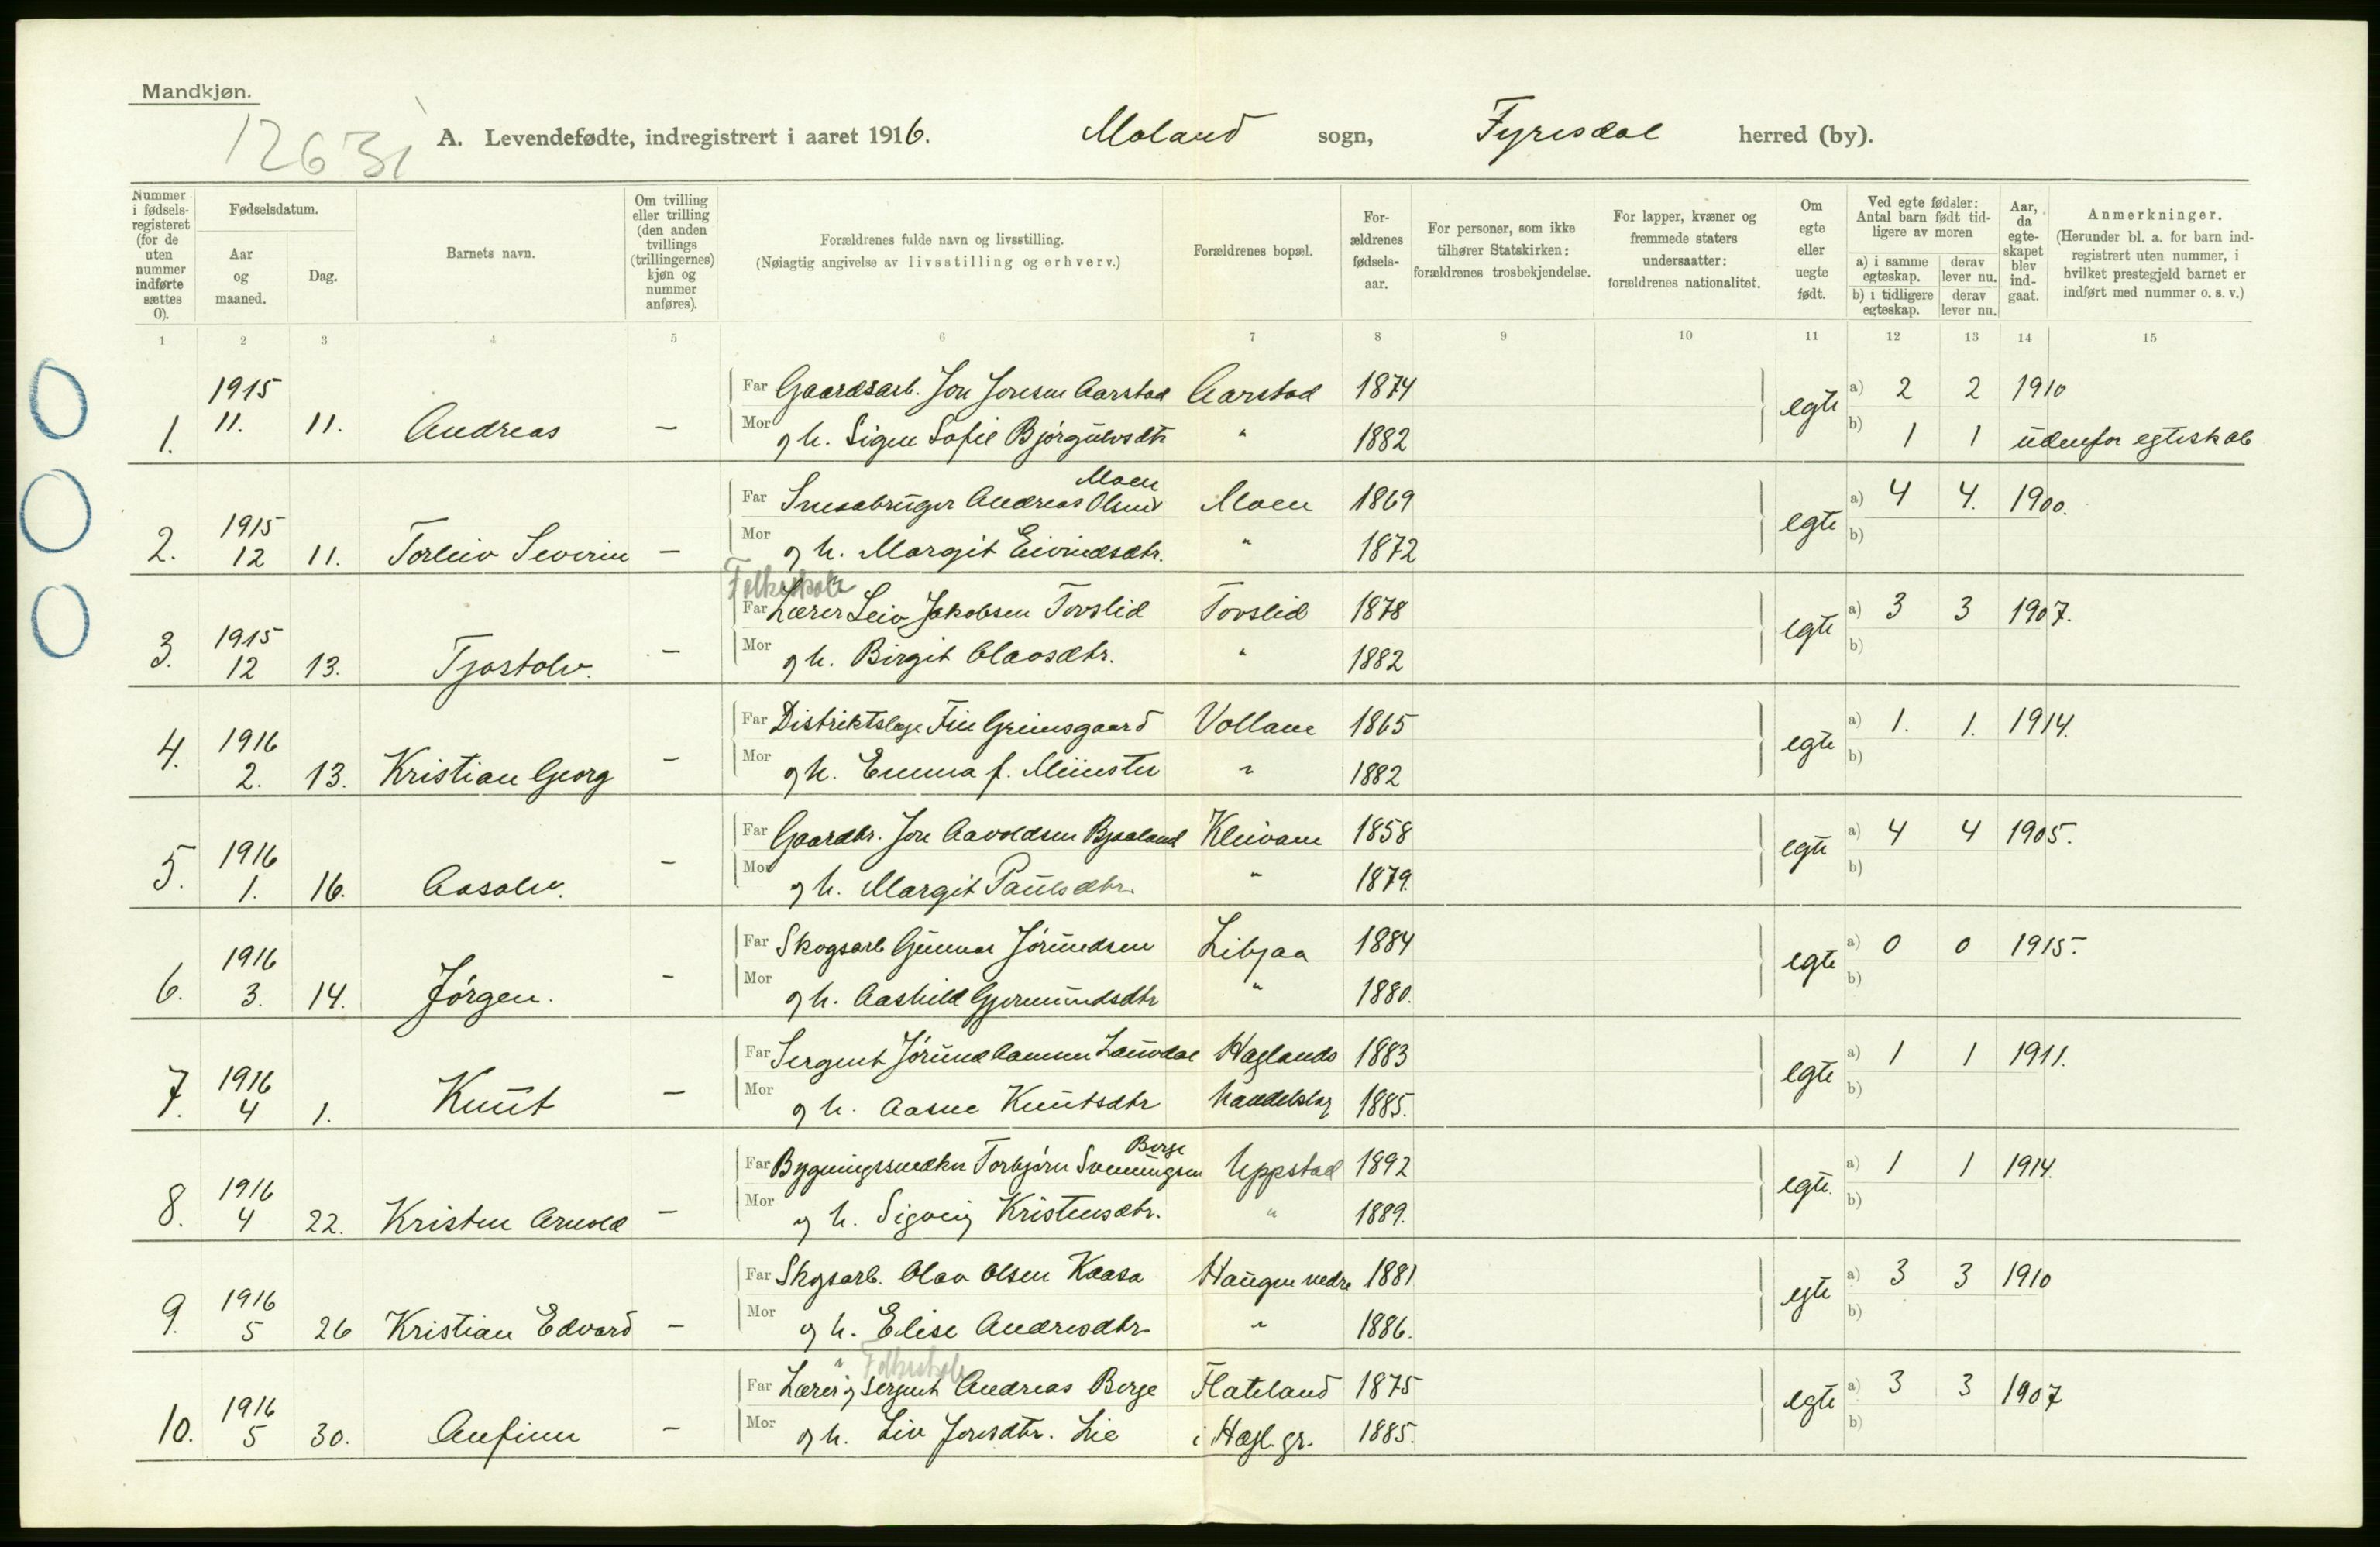 Mandkjøn.
1263
A. Levendefødte, indregistrert i aaret 1916. Moland sogn, Fyresdal herred (by).
Nummer i fødsels-registeret (for de uten nummer indførte sættes 0).
Fødselsdatum.
Aar og maaned.
Dag.
Barnets navn.
Om tvilling eller trilling (den anden tvillings (trillingernes) kjøn og nummer anføres).
Forældrenes fulde navn og livsstilling.
(Nøiagtig angivelse av livsstilling og erhverv.)
Forældrenes bopæl.
For-ældrenes fødsels-aar.
For personer, som ikke tilhører Statskirken: forældrenes trosbekjendelse.
For lapper, kvæner og fremmede staters undersaatter: forældrenes nationalitet.
Om egte eller uegte født.
Ved egte fødsler: Antal barn født tid-ligere av moren
a) i samme egteskap. derav lever nu.
b) i tidligere egteskap. derav lever nu.
Aar, da egte-skapet blev ind-gaat.
Anmerkninger.
(Herunder bl. a. for barn ind-registrert uten nummer, i hvilket prestegjeld barnet er indført med nummer o. s. v.)
1 2 3 4 5 6 7 8 9 10 11 12 13 14 15
1. 1915 11. 11. Andreas – Far Gaardsarb. Jon Jonsen Aarstad Aarstad 1874 egte a) 2 2 1910
Mor og h. Signe Sofie Bjørgulvsdtr " 1882 b) 1 1 udenfor egteskab
2. 1915 12 11. Torleiv Severin – Far Smaabruger Andreas Olsen Moen Moen 1869 egte a) 4 4. 1900.
Mor og h. Margit Eivindsdtr. " 1872 b)
Folkeskole
3. 1915 12 13. Tjostolv. – Far Lærer Leiv Jakobsen Tovslid Tovslid 1878 egte a) 3 3 1907.
Mor og h. Birgit Olavsdtr. " 1882 b)
4. 1916 2. 13. Kristian Georg – Far Distriktslæge Fin Grimsgaard Vollane 1865 egte a) 1. 1. 1914.
Mor og h. Emma f. Münster " 1882 b)
5. 1916 1. 16. Aasolv. – Far Gaardbr. Jon Aavoldsen Bjaaland Kleivane 1858 egte a) 4 4 1905.
Mor og h. Margit Paulsdtr. " 1879. b)
6. 1916 3. 14. Jørgen. – Far Skogsarb Gunnar Jørundsen Libjaa 1884 egte a) 0 0 1915.
Mor og h. Aashild Gjermundsdtr " 1880. b)
7. 1916 4 1. Knut – Far Sergent Jørund Aamun Lauvdal Haglands 1883 egte a) 1 1 1911.
Mor og h. Aasne Knutsdtr handelslag 1885. b)
8. 1916 4 22. Kristen Arnold – Far Bygningssnedker Torbjørn Sveinungsen Berge Uppstad 1892 egte. a) 1 1 1914.
Mor og h. Signe Kristensdtr. " 1889. b)
9. 1916 5 26 Kristian Edvard – Far Skogsarb. Olav Olsen Kaasa Haugen nedre 1881 egte a) 3 3 1910
Mor og h. Elise Andresdtr. " 1886. b)
Folkeskole
10. 1916 5 30. Anfinn – Far Lærer og sergent Andreas Berge Flateland 1875 egte a) 3 3 1907
Mor og h. Liv Jonsdtr. Lie i Hagl. gr. 1885. b)